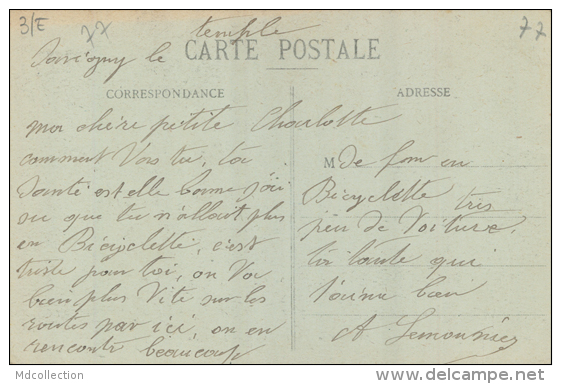 3/E 77 temple 77
Savigny le
CARTE POSTALE
CORRESPONDANCE
ADRESSE
Ma chère petite Charlotte
comment Vas tu, ta
Santé est elle bonne j'ai
su que tu n'allait plus
en Bicyclette, c'est
triste pour toi, on Va
bien plus Vite sur les
routes par ici, on en
rencontre beaucoup
M de fom en
Bicyclette très
peu de Voiture,
ta tante qui
t'aime bien
A Lemounier
Mdcollection
http://www.delcampe.net